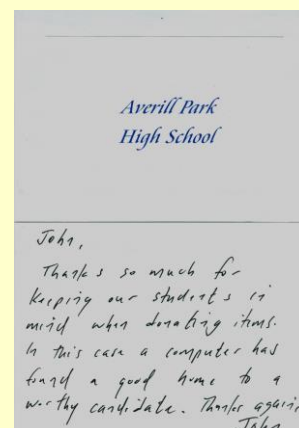 Averill Park
High School
John,
Thanks so much for
keeping our students in
mind when donating items.
In this case a computer has
found a good home to a
worthy candidate. Thanks again
John